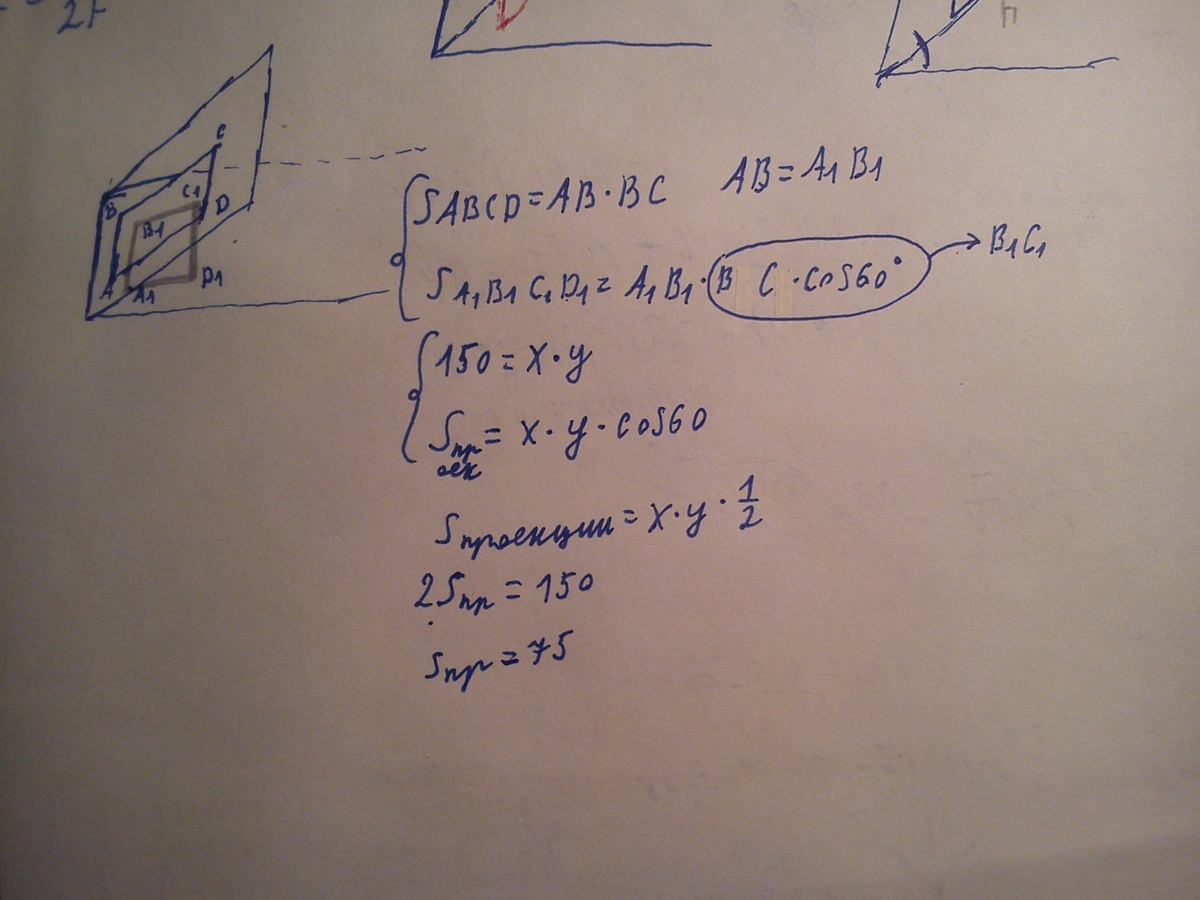 2r
h
C
B C1 D
B1
A A1 D1
SABCD=AB·BC AB=A1B1
SA1B1C1D1=A1B1·B C·cos60° → B1C1
150=x·y
Sпроек=x·y·cos60
Sпроекции=x·y·1/2
2Sпр=150
Sпр=75